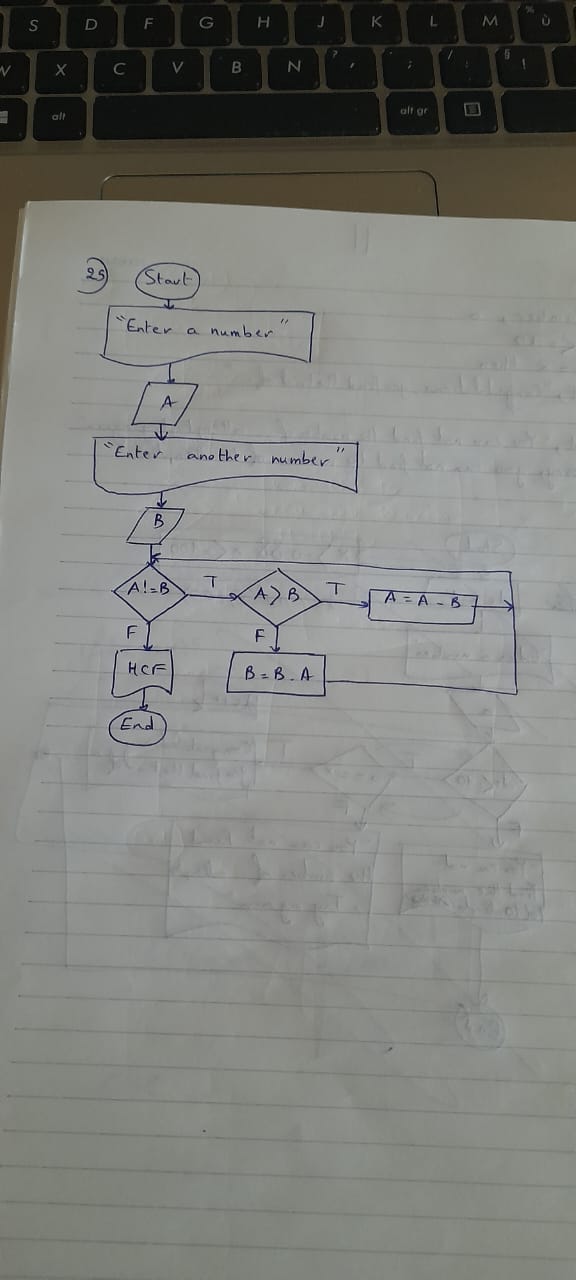 S D F G H J K L M % ù
X C V B N ? , . ; / : § !
alt alt gr
25 Start
"Enter a number"
A
"Enter another number"
B
A!=B T A>B T A = A - B
F F
HCF B = B - A
End